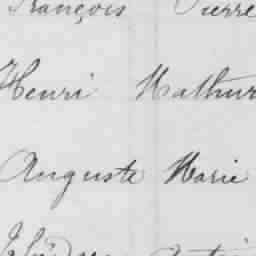 François Pierre
Henri Mathur
Auguste Marie